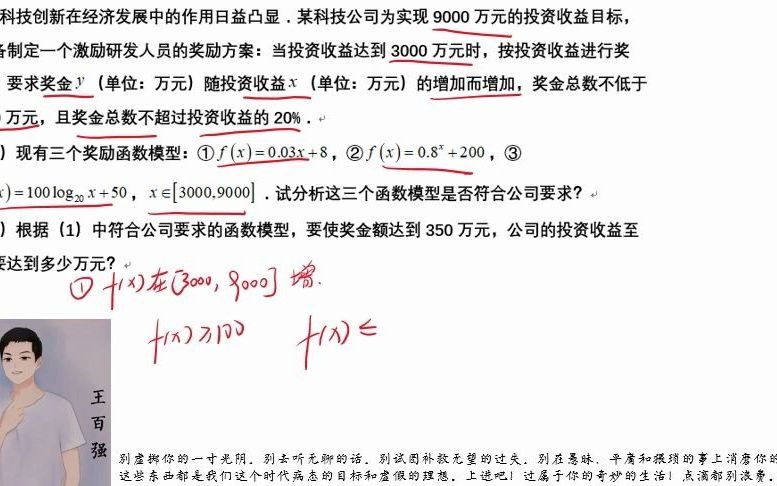 科技创新在经济发展中的作用日益凸显．某科技公司为实现 9000 万元的投资收益目标，
备制定一个激励研发人员的奖励方案：当投资收益达到 3000 万元时，按投资收益进行奖
要求奖金 y（单位：万元）随投资收益 x（单位：万元）的增加而增加，奖金总数不低于
万元，且奖金总数不超过投资收益的 20%．
）现有三个奖励函数模型：①f(x)=0.03x+8，②f(x)=0.8^x+200，③
x)=100log_20 x+50，x∈[3000,9000]．试分析这三个函数模型是否符合公司要求？
）根据（1）中符合公司要求的函数模型，要使奖金额达到 350 万元，公司的投资收益至
要达到多少万元？
① f(x)在[3000, 9000] 增.
f(x)≥100 f(x)≤
王百强
别虚掷你的一寸光阴。别去听无聊的话。别试图补救无望的过失。别在愚昧、平庸和猥琐的事上消磨你的
这些东西都是我们这个时代病态的目标和虚假的理想。上进吧！过属于你的奇妙的生活！点滴都别浪费。